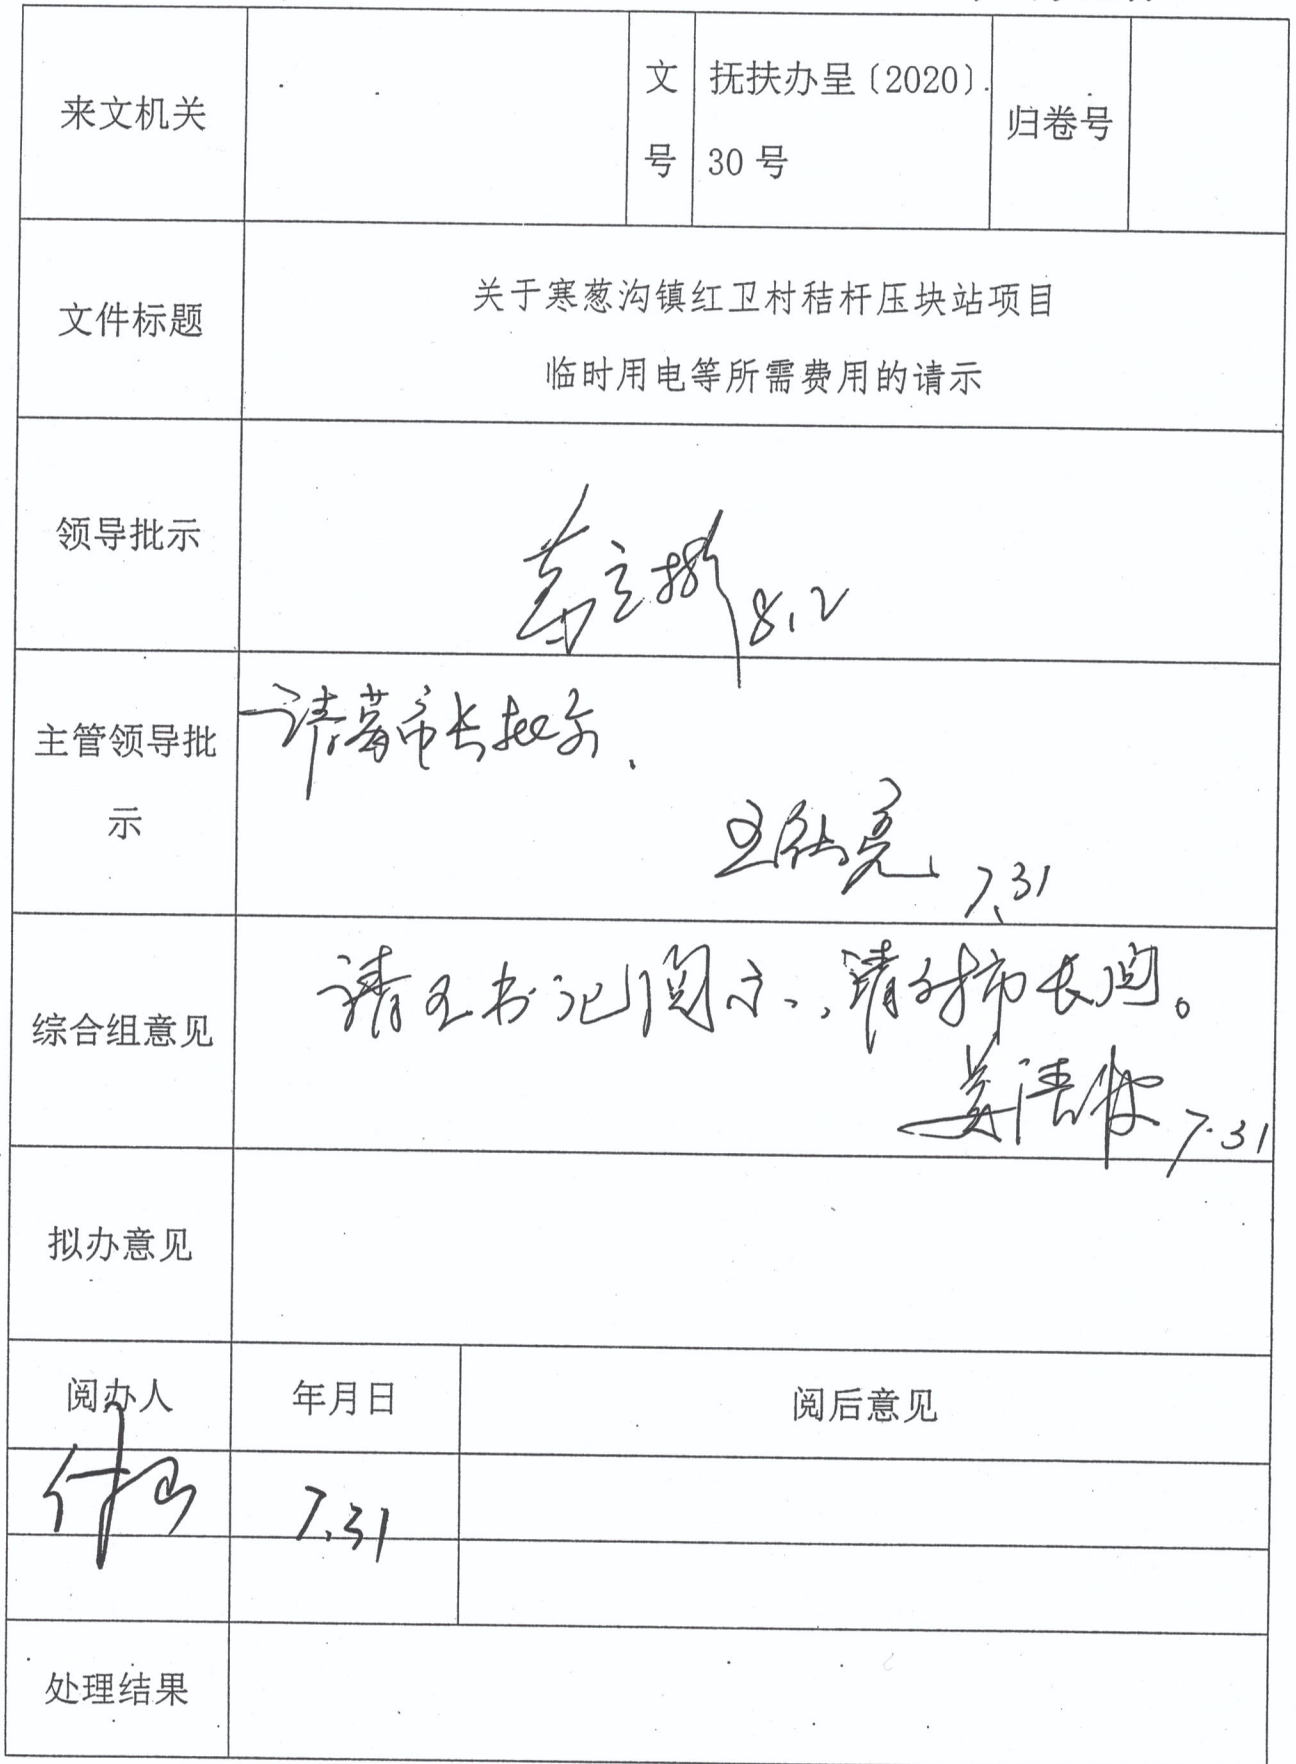 来文机关
文号
抚扶办呈〔2020〕
30 号
归卷号
文件标题
关于寒葱沟镇红卫村秸杆压块站项目
临时用电等所需费用的请示
领导批示
8.2
主管领导批
示
请 市长批示.
7.31
综合组意见
请王书记阅示、请 市长阅。
7.31
拟办意见
阅办人
年月日
阅后意见
7.31
处理结果